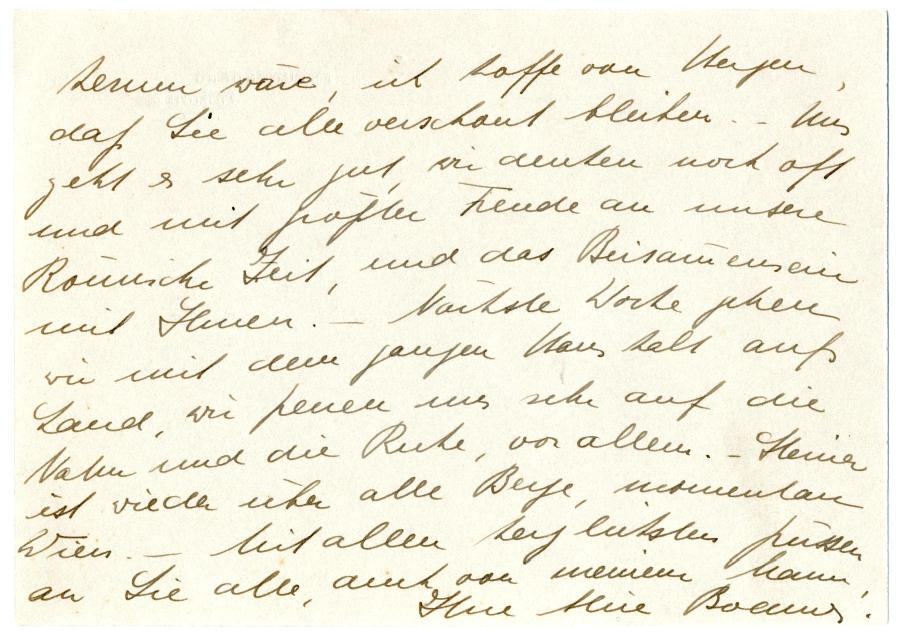 wäre, ich hoffe von Herzen,
daß Sie alle verschont bleiben. – Uns
geht es sehr gut, wir denken noch oft
und mit größter Freude an unsere
Römische Zeit, und das Beisam̅ensein
mit Ihnen. – Nächste Woche gehen
wir mit dem ganzen Haushalt aufs
Land, wir freuen uns sehr auf die
Natur und die Ruhe, vor allem. –
ist wieder über alle Berge, momentan
Wien. – Mit allen herzlichsten Grüssen
an Sie alle, auch von meinem Mann,
Ihre